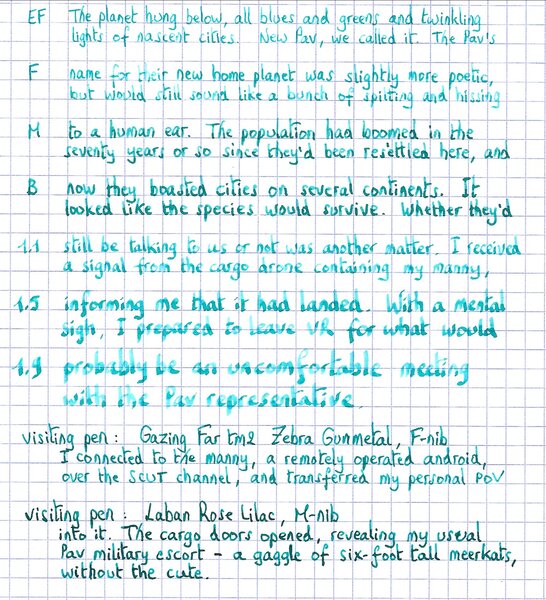 EF The planet hung below, all blues and greens and twinkling
lights of nascent cities. New Pav, we called it. The Pav's
F name for their new home planet was slightly more poetic,
but would still sound like a bunch of spitting and hissing
M to a human ear. The population had boomed in the
seventy years or so since they'd been resettled here, and
B now they boasted cities on several continents. It
looked like the species would survive. Whether they'd
1.1 still be talking to us or not was another matter. I received
a signal from the cargo drone containing my manny,
1.5 informing me that it had landed. With a mental
sigh, I prepared to leave VR for what would
1.9 probably be an uncomfortable meeting
with the Pav representative.
visiting pen: Gazing Far tm2 Zebra Gunmetal, F-nib
I connected to the manny, a remotely operated android,
over the SCUT channel, and transferred my personal PoV
visiting pen: Laban Rose Lilac, M-nib
into it. The cargo doors opened, revealing my usual
Pav military escort - a gaggle of six-foot tall meerkats,
without the cute.